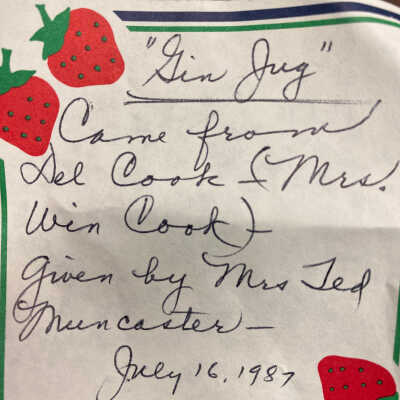 "Gin Jug"
Came from
Del Cook - (Mrs.
Win Cook) -
Given by Mrs Ted
Muncaster -
July 16, 1987